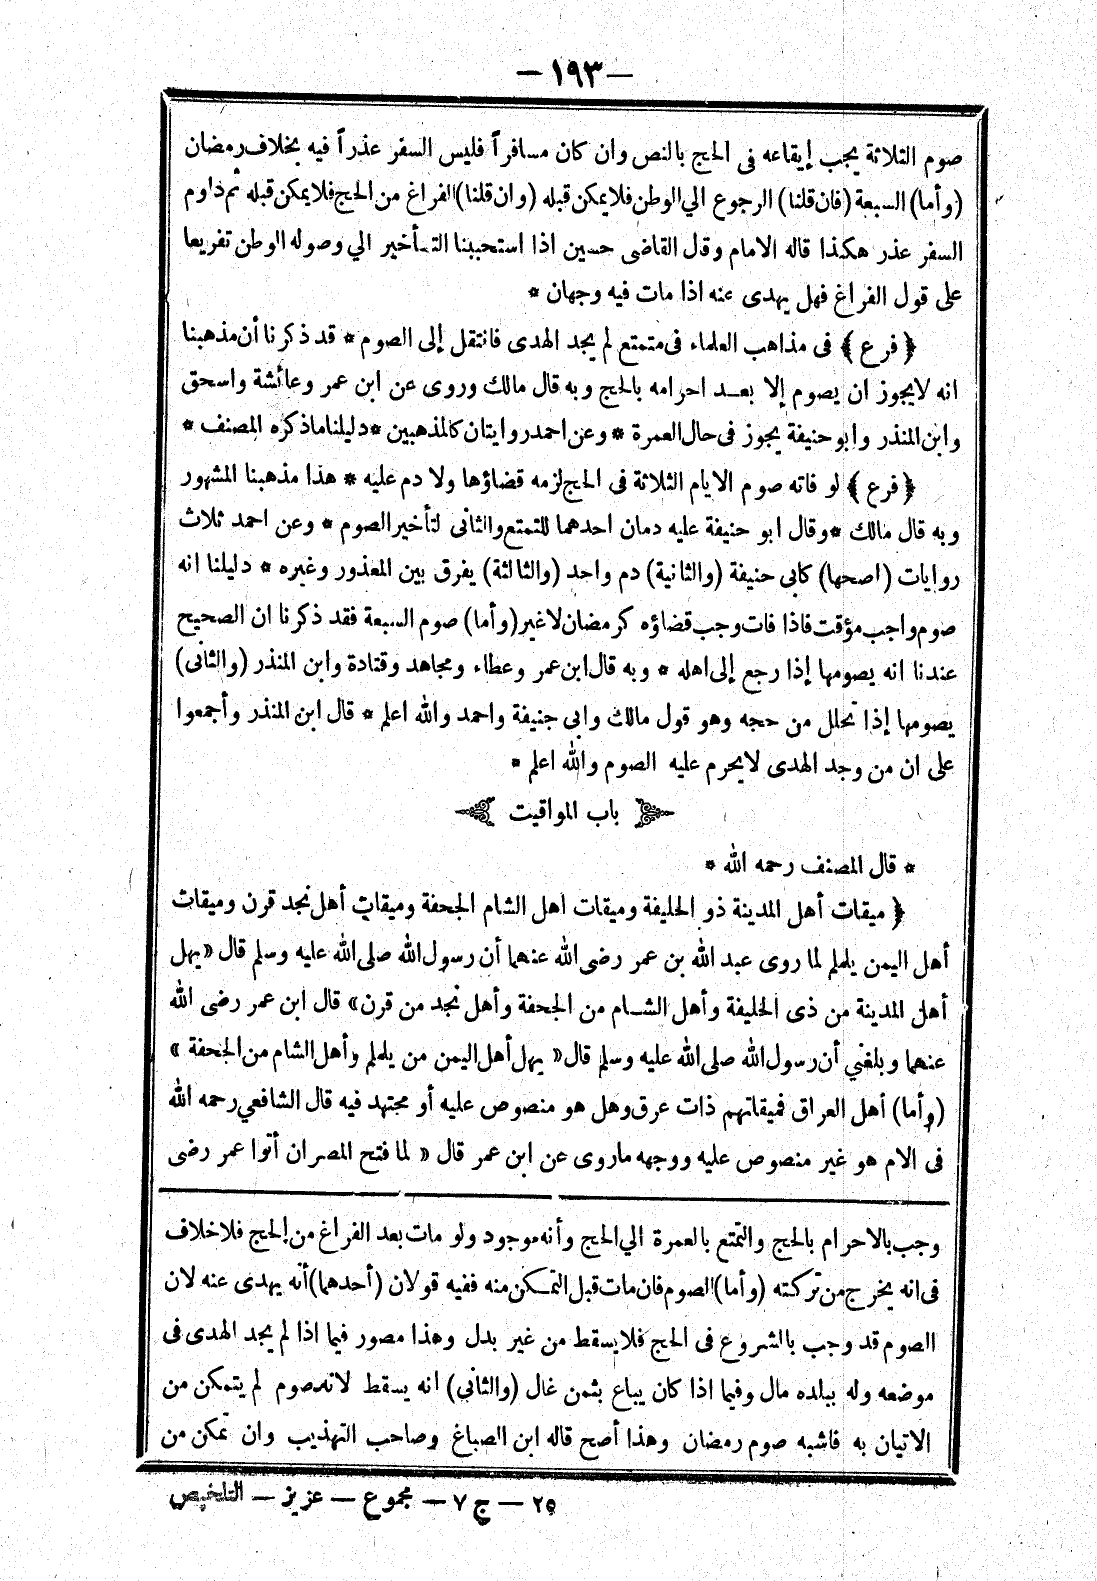 — ١٩٣ —
صوم الثلاثة يجب إيقاعه فى الحج بالنص وان كان مسافراً فليس السفر عذراً فيه بخلاف رمضان
(وأما) السبعة (فان قلنا) الرجوع الي الوطن فلا يمكن قبله (وان قلنا) الفراغ من الحج فلا يمكن قبله ثم دوام
السفر عذر هكذا قاله الامام وقال القاضى حسين اذا استحببنا التـأخير الي وصوله الوطن تفريعا
على قول الفراغ فهل يهدى عنه اذا مات فيه وجهان *
﴿ فرع ﴾ فى مذاهب العلماء فى متمتع لم يجد الهدى فانتقل إلى الصوم * قد ذكرنا أن مذهبنا
انه لايجوز ان يصوم إلا بعـد احرامه بالحج وبه قال مالك وروى عن ابن عمر وعائشة واسحق
وابن المنذر وابو حنيفة يجوز فى حال العمرة * وعن احمد روايتان كالمذهبين * دليلنا ماذكره المصنف *
﴿ فرع ﴾ لو فاته صوم الايام الثلاثة فى الحج لزمه قضاؤها ولا دم عليه * هذا مذهبنا المشهور
وبه قال مالك * وقال ابو حنيفة عليه دمان احدهما للتمتع والثانى لتأخير الصوم * وعن احمد ثلاث
روايات (اصحها) كابى حنيفة (والثانية) دم واحد (والثالثة) يفرق بين المعذور وغيره * دليلنا انه
صوم واجب مؤقت فاذا فات وجب قضاؤه كرمضان لاغير (وأما) صوم السبعة فقد ذكرنا ان الصحيح
عندنا انه يصومها إذا رجع إلى اهله * وبه قال ابن عمر وعطاء ومجاهد وقتادة وابن المنذر (والثانى)
يصومها إذا تحلل من حجه وهو قول مالك وابي حنيفة واحمد والله اعلم * قال ابن المنذر وأجمعوا
على ان من وجد الهدى لايحرم عليه الصوم والله اعلم *
باب المواقيت
* قال المصنف رحمه الله *
﴿ ميقات أهل المدينة ذو الحليفة وميقات اهل الشام الجحفة وميقات أهل نجد قرن وميقات
أهل اليمن يلملم لما روى عبد الله بن عمر رضى الله عنهما أن رسول الله صلى الله عليه وسلم قال « يهل
أهل المدينة من ذى الحليفة وأهل الشـام من الجحفة وأهل نجد من قرن » قال ابن عمر رضى الله
عنهما وبلغني أن رسول الله صلى الله عليه وسلم قال « يهل أهل اليمن من يلملم وأهل الشام من الجحفة »
(وأما) أهل العراق فميقاتهم ذات عرق وهل هو منصوص عليه أو مجتهد فيه قال الشافعي رحمه الله
فى الام هو غير منصوص عليه ووجهه ماروى عن ابن عمر قال « لما فتح المصران أتوا عمر رضى
وجب بالاحرام بالحج والتمتع بالعمرة الي الحج وأنه موجود ولو مات بعد الفراغ من الحج فلا خلاف
فى انه يخرج من تركته (وأما) الصوم فان مات قبل التمـكن منه ففيه قولان (أحدهما) أنه يهدى عنه لان
الصوم قد وجب بالشروع فى الحج فلا يسقط من غير بدل وهذا مصور فيما اذا لم يجد الهدى فى
موضعه وله ببلده مال وفيما اذا كان يباع بثمن غال (والثانى) انه يسقط لانه صوم لم يتمكن من
الاتيان به فاشبه صوم رمضان وهذا أصح قاله ابن الصباغ وصاحب التهذيب وان تمكن من
٢٥ — ج ٧ — مجموع — عزيز — التلخيص